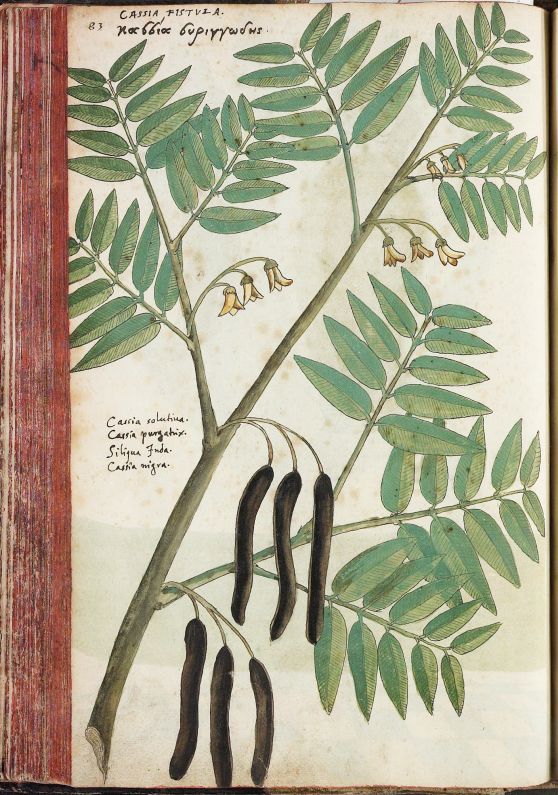 CASSIA FISTVLA.
83 κασσία συριγγώδης.
Cassia solutiua.
Cassia purgatrix.
Siliqua Inda.
Cassia nigra.